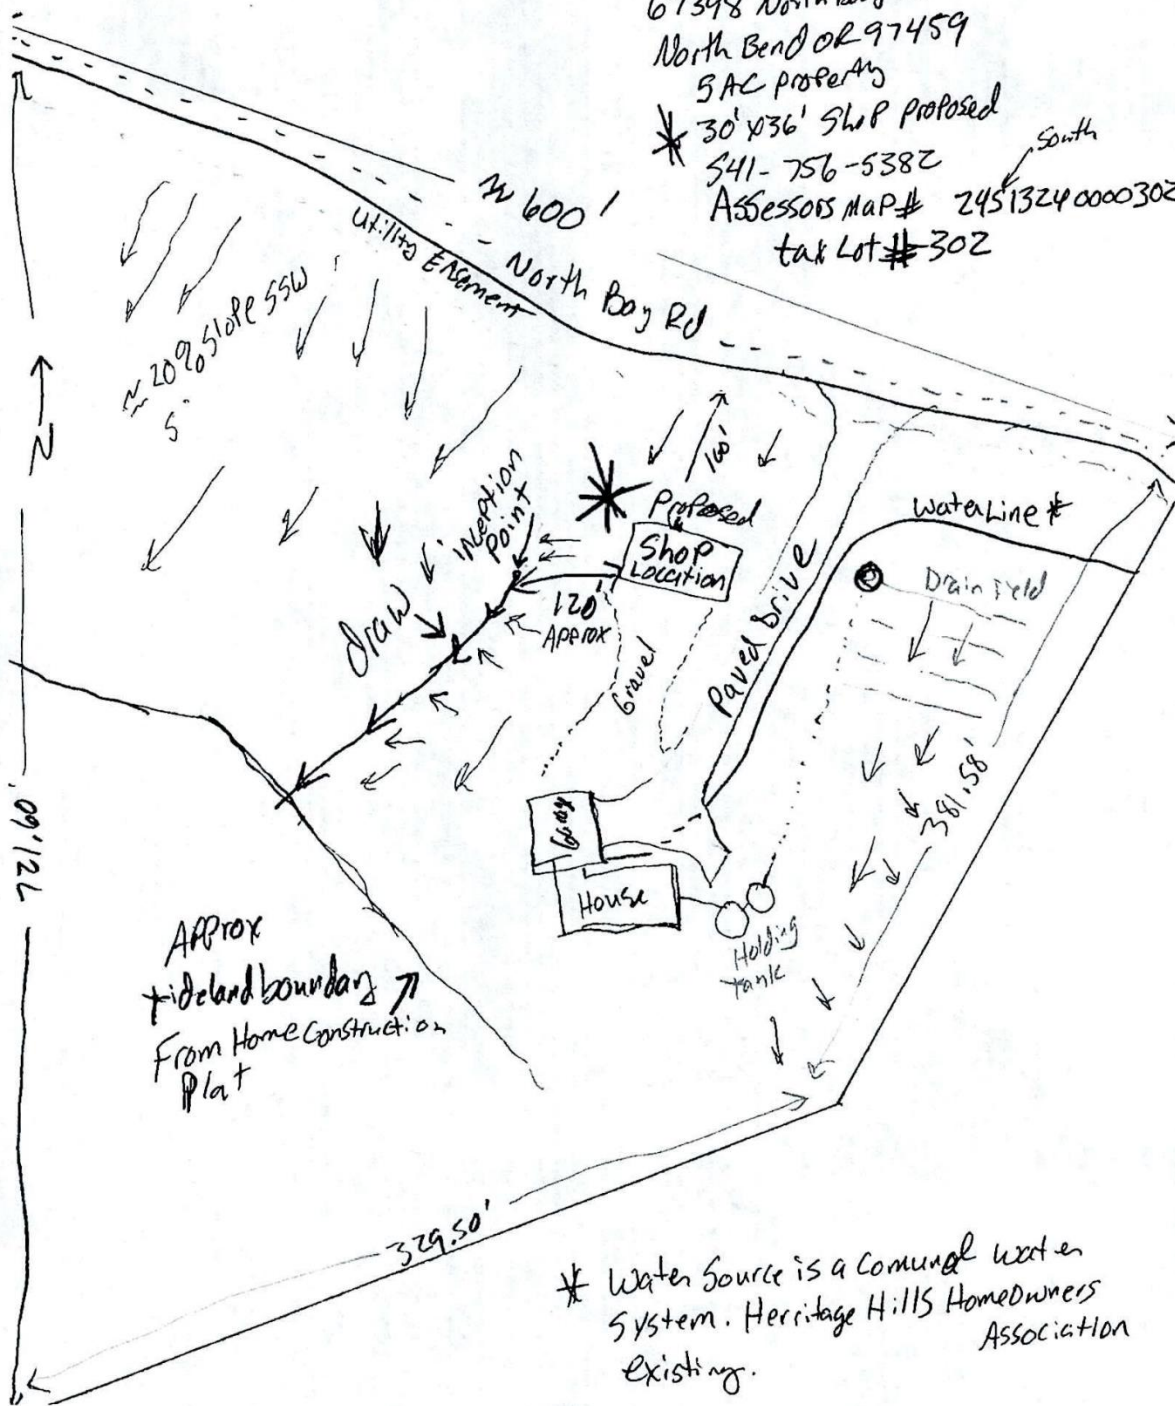 67398 North Bay
North Bend OR 97459
5 AC property
* 30' x 36' Shop proposed
541-756-5382
South
Assessors Map # 24S13240000302
tax Lot # 302
≈ 600'
Utility Easement
North Bay Rd
≈ 20% slope SSW
S
N
inception
Point
100'
Proposed
Shop
Location
WaterLine *
Drainfield
draw
120'
Approx
Gravel
Paved Drive
381.58'
721.60'
House
Holding
tank
Approx
tideland boundary
From Home Construction
Plat
329.50'
* Water Source is a Comunal water
System. Herritage Hills HomeOwners
Association
existing.